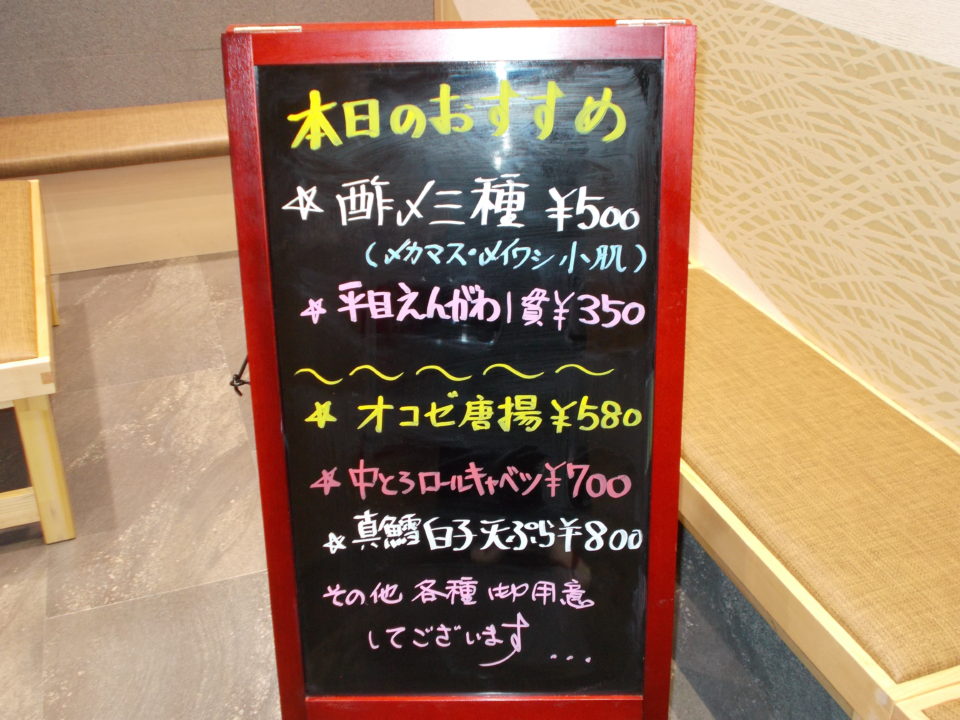 本日のおすすめ
☆酢〆三種 ¥500
(〆カマス・〆イワシ 小肌)
☆平目えんがわ1貫¥350
〜〜〜〜〜
☆オコゼ唐揚¥580
☆中とろロールキャベツ¥700
☆真鱈白子天ぷら¥800
その他 各種 御用意
してございます...